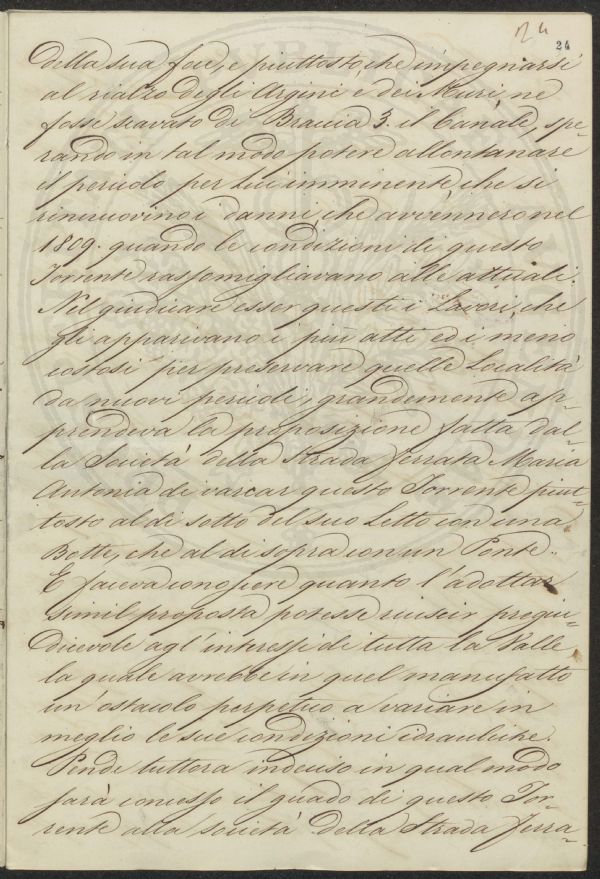 24
24
della sua foce, e piuttosto, che impegnarsi
al rialzo degli Argini e dei Muri, ne
fosse scavato di Braccia 3. il Canale, spe-
rando in tal modo potere allontanare
il pericolo per lui imminente, che si
rinnuovino i danni che avvennero nel
1809. quando le condizioni di questo
Torrente rassomigliavano alle attuali.
Nel giudicare esser questi i Lavori, che
gli apparivano i più atti, ed i meno
costosi per preservare quelle Località
da nuovi pericoli, grandemente ap-
prendeva la proposizione fatta dal-
la Società della Strada ferrata Maria
Antonia di varcar questo Torrente piut-
tosto al di sotto del suo Letto con una
Botte, che al di sopra con un Ponte.
E faceva conoscere quanto l'adottar
simil proposta potesse riuscir pregiu-
dicevole agl'interessi di tutta la Valle,
la quale avrebbe in quel manufatto
un'ostacolo perpetuo a variare in
meglio le sue condizioni idrauliche.
Pende tuttora indeciso in qual modo
sarà concesso il guado di questo Tor-
rente alla Società della Strada Ferra-